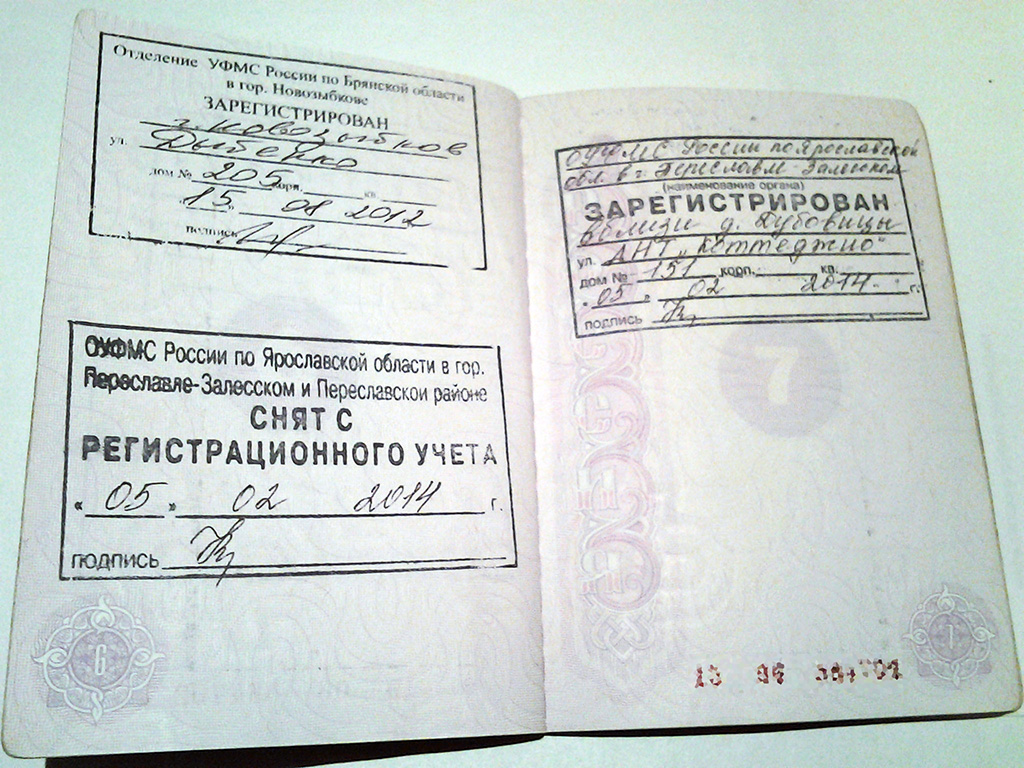 Отделение УФМС России по Брянской области
в гор. Новозыбкове
ЗАРЕГИСТРИРОВАН
г. Новозыбков
ул. Дыбенко
дом № 205 корп. кв.
15 08 2012
подпись
ОУФМС России по Ярославской области в гор.
Переславле-Залесском и Переславской районе
СНЯТ С
РЕГИСТРАЦИОННОГО УЧЕТА
« 05 » 02 2014 г.
подпись
6
ОУФМС России по Ярославской
обл. в г. Переславле-Залесском
(наименование органа)
ЗАРЕГИСТРИРОВАН
вблизи д. Дубовицы
ул. ДНТ „Коттеджио"
дом № 151 корп. кв.
« 05 » 02 2014 г.
подпись
7
7